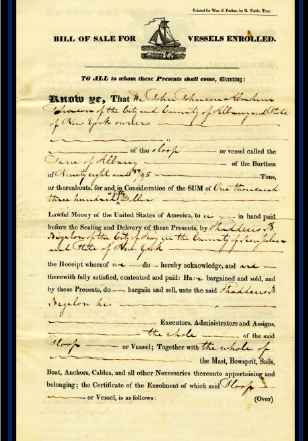 Printed for Wm. S. Parker, by R. Tuttle, Troy.
BILL OF SALE FOR VESSELS ENROLLED.
TO ALL to whom these Presents shall come, Greeting:
Know ye, That We John Johnson Abraham
Johnson of the City and County of Albany and State
of New York owners
of the sloop or vessel called the
Jane of Albany of the Burthen
of Ninety eight and /95 Tons,
or thereabouts, for and in Consideration of the SUM of One thousand
three hundred Dollars
Lawful Money of the United States of America, to us in hand paid
before the Sealing and Delivery of these Presents, by Thaddeus B.
Bigelow of the City of Troy in the County of Rensselaer
and State of New York
the Receipt whereof we do hereby acknowledge, and are
therewith fully satisfied, contented and paid: Have bargained and sold, and
by these Presents, do bargain and sell, unto the said Thaddeus B.
Bigelow his
Executors, Administrators and Assigns,
the whole of the said
Sloop or Vessel; Together with the whole of
the Mast, Bowsprit, Sails,
Boat, Anchors, Cables, and all other Necessaries thereunto appertaining and
belonging; the Certificate of the Enrolment of which said Sloop
or Vessel, is as follows: (Over)